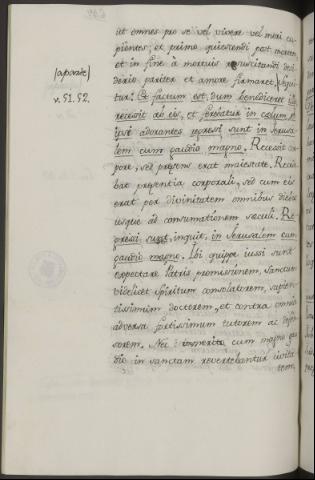 ut omnes pro se vel vivere vel mori cu-
pientes; et primo quiescendi post mortem,
et in fine à mortuis resuscitandi desi-
derio pariter et amore firmaret. Sequi-
(aparte) tur: Et factum est, dum benediceret illis,
recessit ab eis, et ferebatur in cœlum, et
v. 51. 52. ipsi adorantes regressi sunt in Jerusa-
lem cum gaudio magno. Recessit cor-
pore, sed præsens erat maiestate. Rece-
bat præsentia corporali, sed cum eis
erat per divinitatem omnibus diebus
usque ad consumationem sæculi. Re-
gressi sunt, inquit, in Jerusalem cum
gaudio magno. Ibi quippe iussi sunt
expectare Patris promissionem, sanctum
videlicet Spiritum consolatorem, sapien-
tissimum doctorem, et contra omnia
adversa fortissimum tutorem ac defen-
sorem. Nec immerito cum magno gau-
dio in sanctam revertebantur civita-
tem,